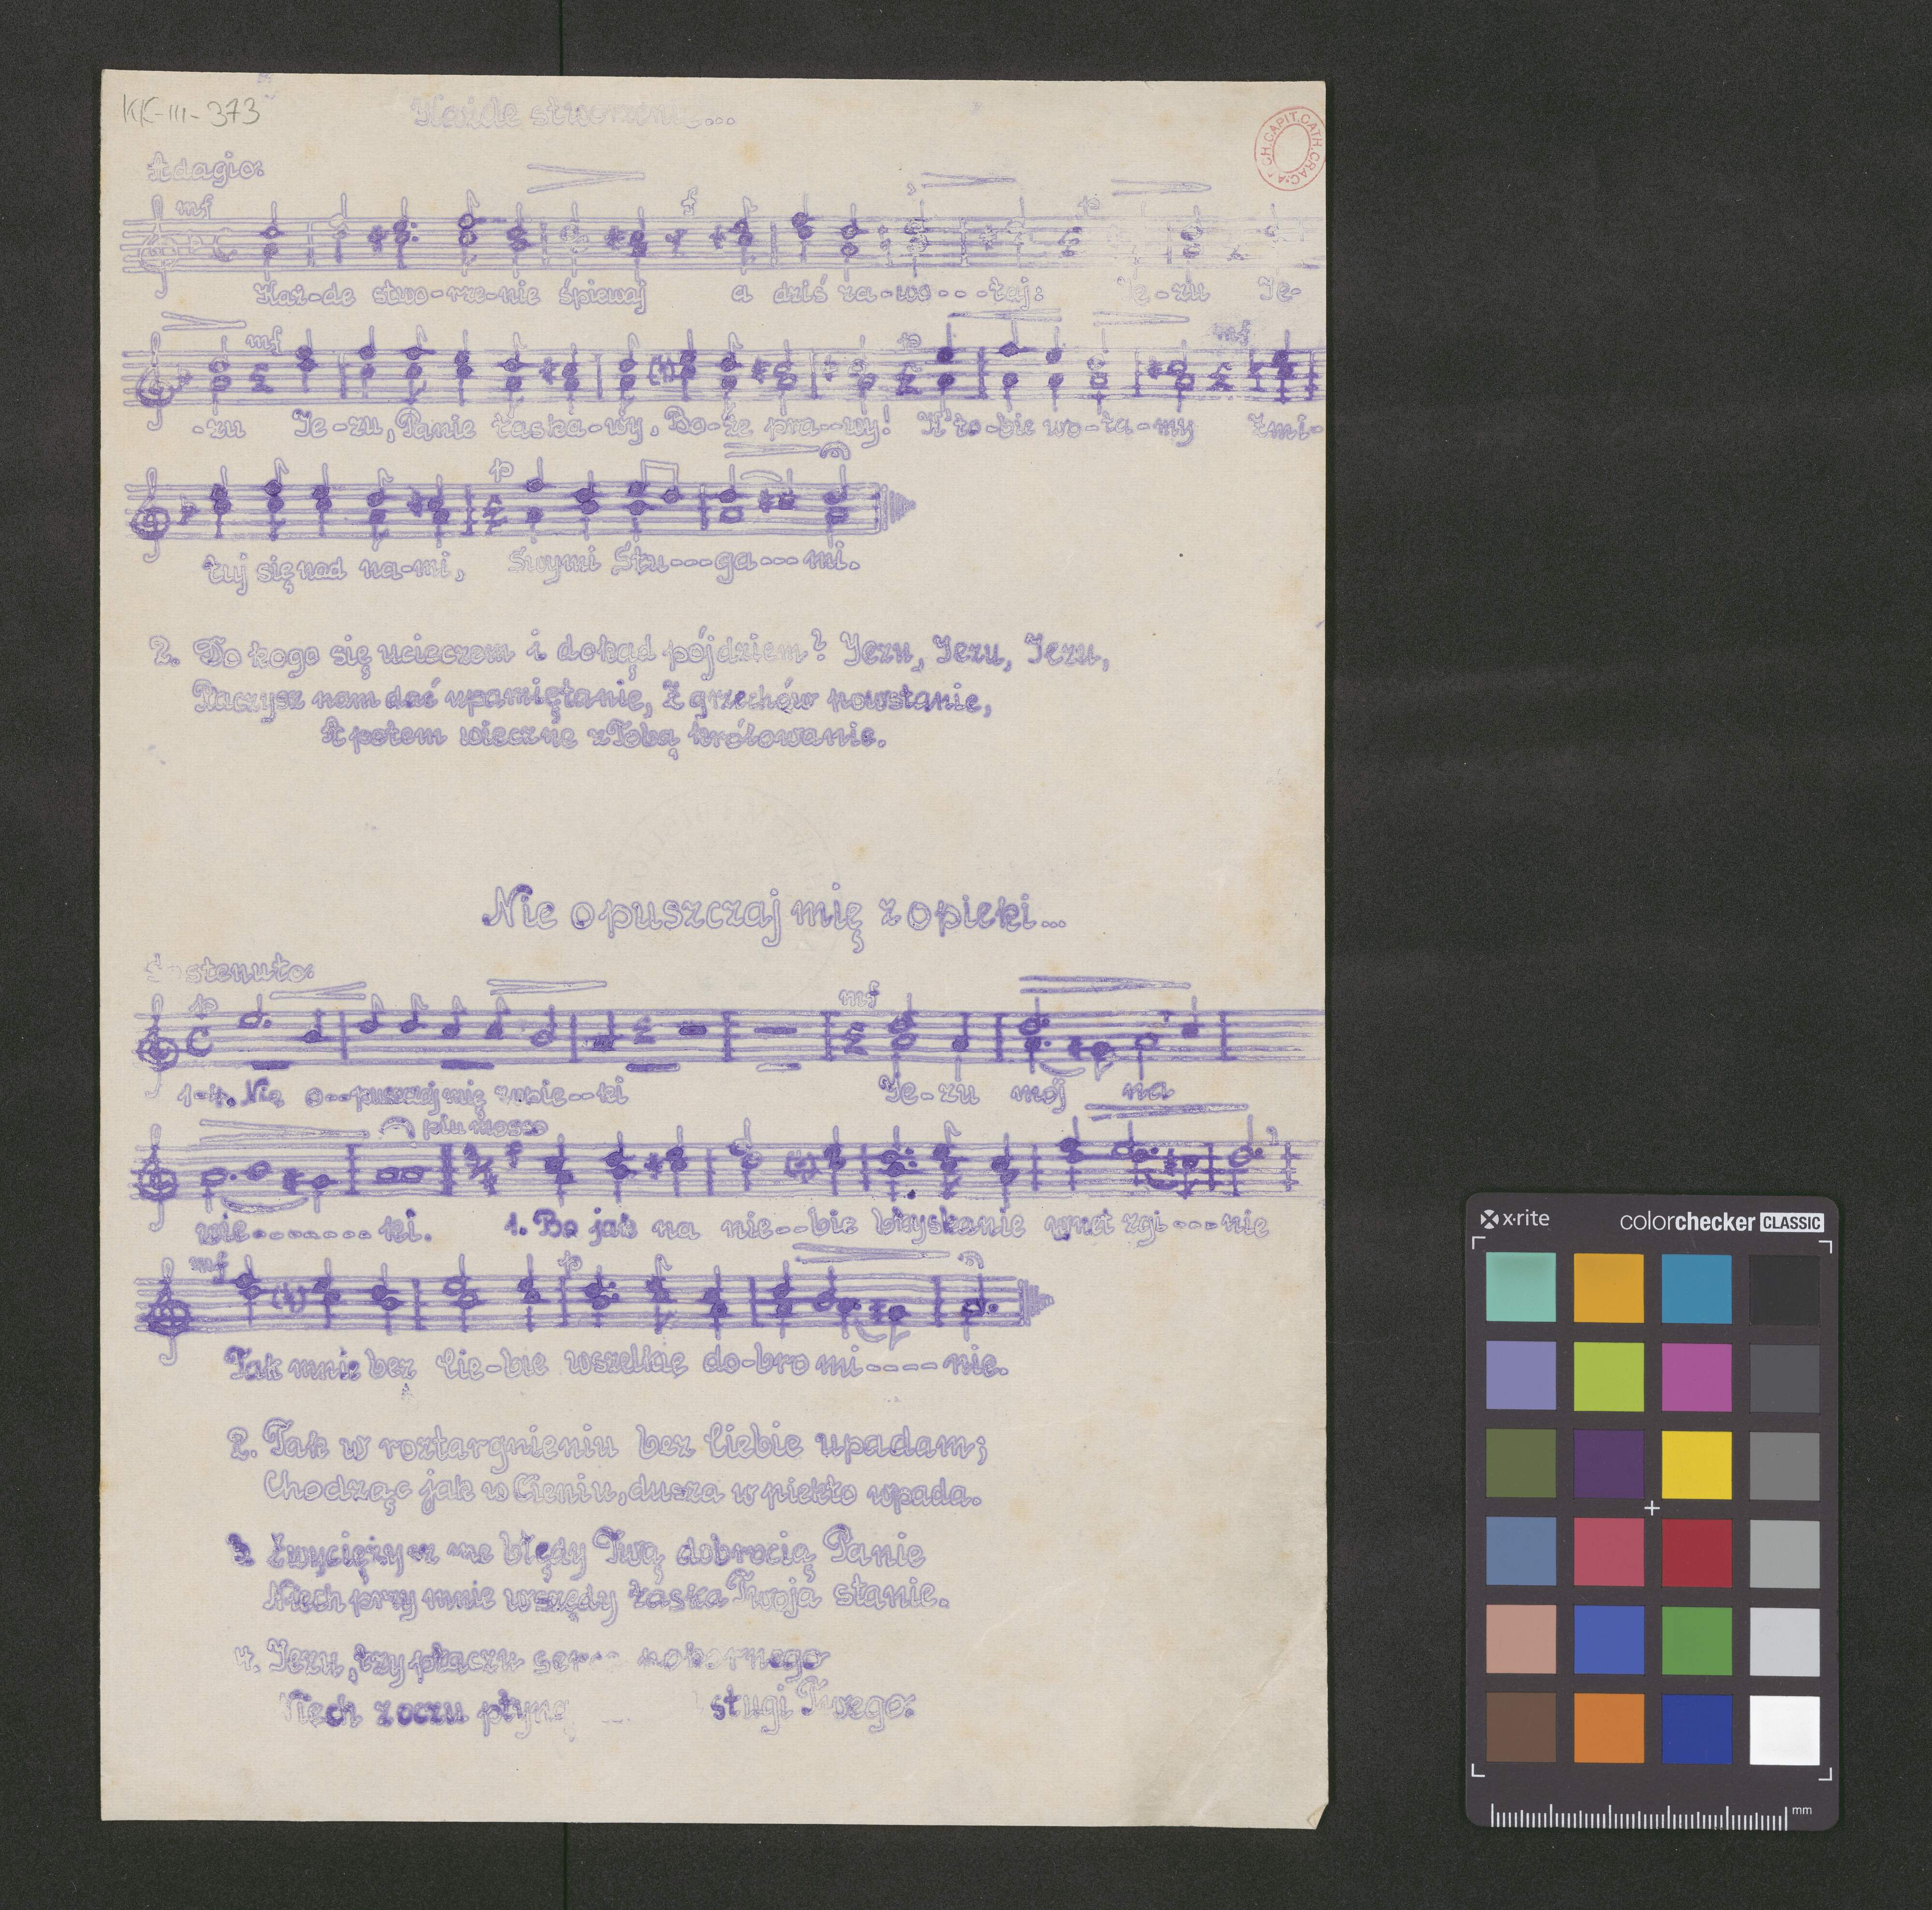 KK-III-373
Każde stworzenie...
CH.CAPIT.CATH.CRAC.A
Adagio:
mf f p
Każ-de stwo-rze-nie śpiewaj a dziś za-wo---łaj: Je-zu Je-
mf p mf
-zu Je-zu, Panie łaska-wy, Bo-że pra--wy! K'to-bie wo-ła-my Zmi-
p
łuj się nad na-mi, Swymi Słu---ga---mi.
2. Do kogo się ucieczem i dokąd pójdziem? Jezu, Jezu, Jezu,
Raczysz nam dać upamiętanie, Z grzechów powstanie,
A potem wieczne z Tobą królowanie.
Nie opuszczaj mię z opieki...
Sostenuto:
p mf
1-4. Nie o--puszczaj mię zopie--ki Je-zu mój na
piu mosso
wie-------ki. 1. Bo jak na nie--bie błyskanie wnet zgi---nie
mf p
Tak mnie bez Cie-bie wszelkie do-bro mi----nie.
2. Tak w roztargnieniu bez Ciebie upadam;
Chodząc jak w Cieniu, dusza w piekło wpada.
3 Zwyciężysz me błędy Twą dobrocią Panie
Niech przy mnie wszędy łaska Twoja stanie.
4. Jezu, łzy płaczu
Niech z oczu płyną sługi Twego:
x-rite colorchecker CLASSIC
mm